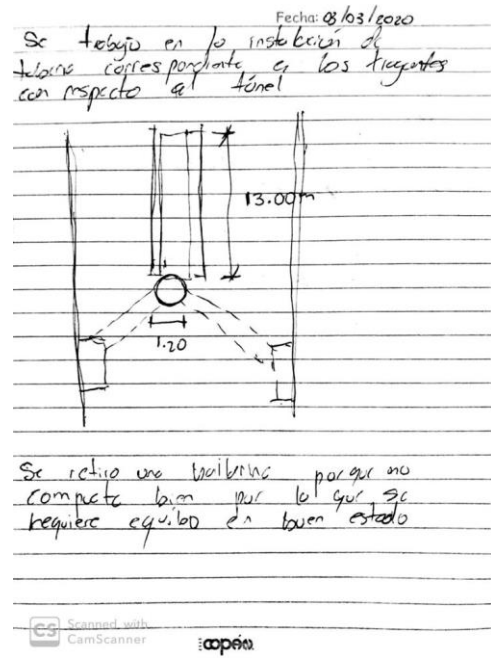 Fecha: 03/03/2020
Se trabajo en la instalación de
tuberia correspondiente a los tragantes
con respecto al túnel
13.00m
1.20
Se retiro una bailarina porque no
compacta bien por lo que se
requiere equipo en buen estado
CS Scanned with
CamScanner
copán